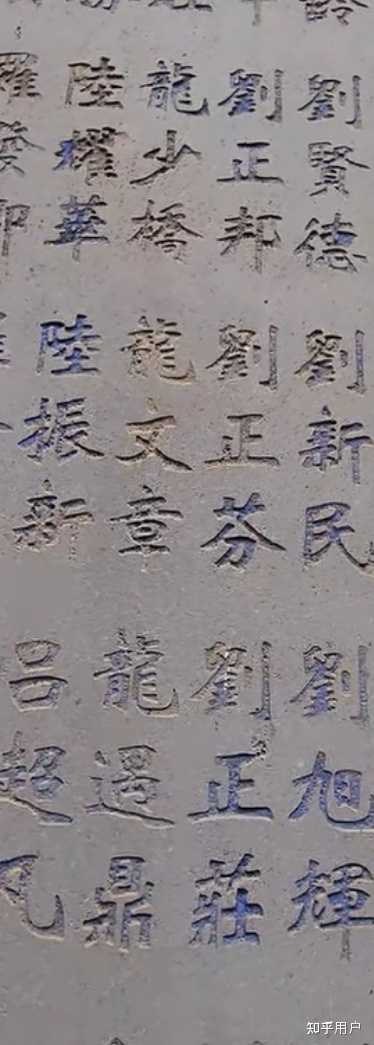 劉賢德
劉新民
劉旭輝
劉正邦
劉正芬
劉正莊
龍少橋
龍文章
龍遇鼎
陸耀華
陸振新
呂超凡
知乎用户